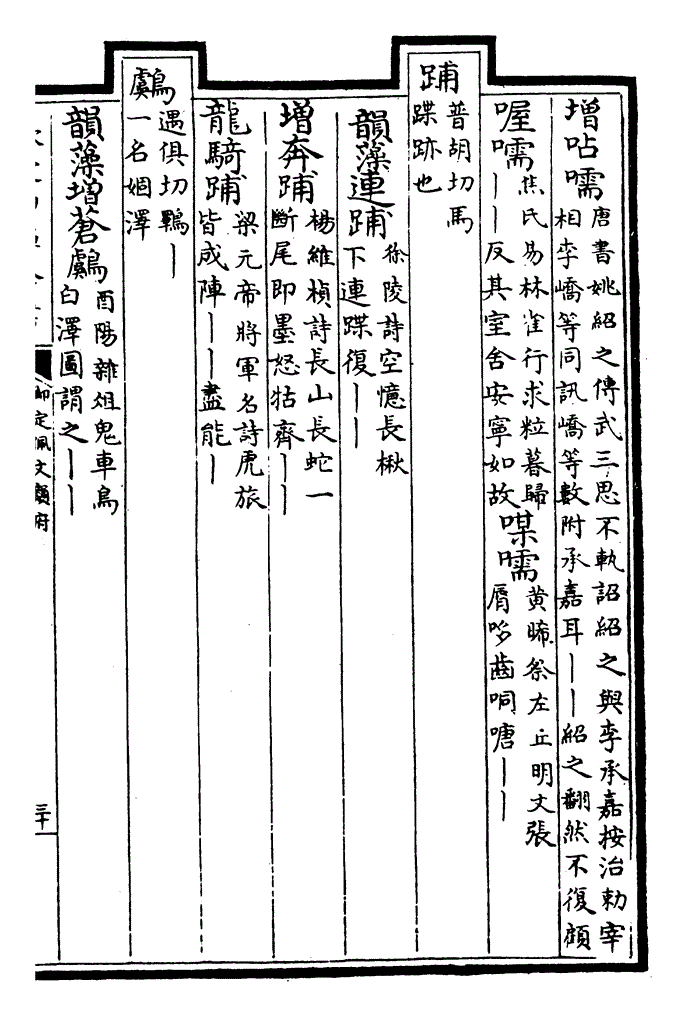 增呫嚅唐書姚紹之傳武三思不軌詔紹之與李承嘉按治勅宰
相李嶠等同訊嶠等數附承嘉耳——紹之翻然不復顧
喔嚅焦氏易林雀行求粒暮歸
——反其室舍安寧如故
㖼嚅黄晞祭左丘明文張
脣哆齒哃嘡——
䩉普胡切馬
蹀跡也
韻藻連䩉徐陵詩空憶長楸
下連蹀復——
增奔䩉楊維楨詩長山長蛇一
斷尾即墨怒牯齊——
龍騎䩉梁元帝將軍名詩虎旅
皆成陣——盡能—
鸆遇俱切鷽—
一名婟澤
韻藻增蒼鸆酉陽雜俎鬼車鳥
白澤圖謂之——
御定佩文韻府
三十